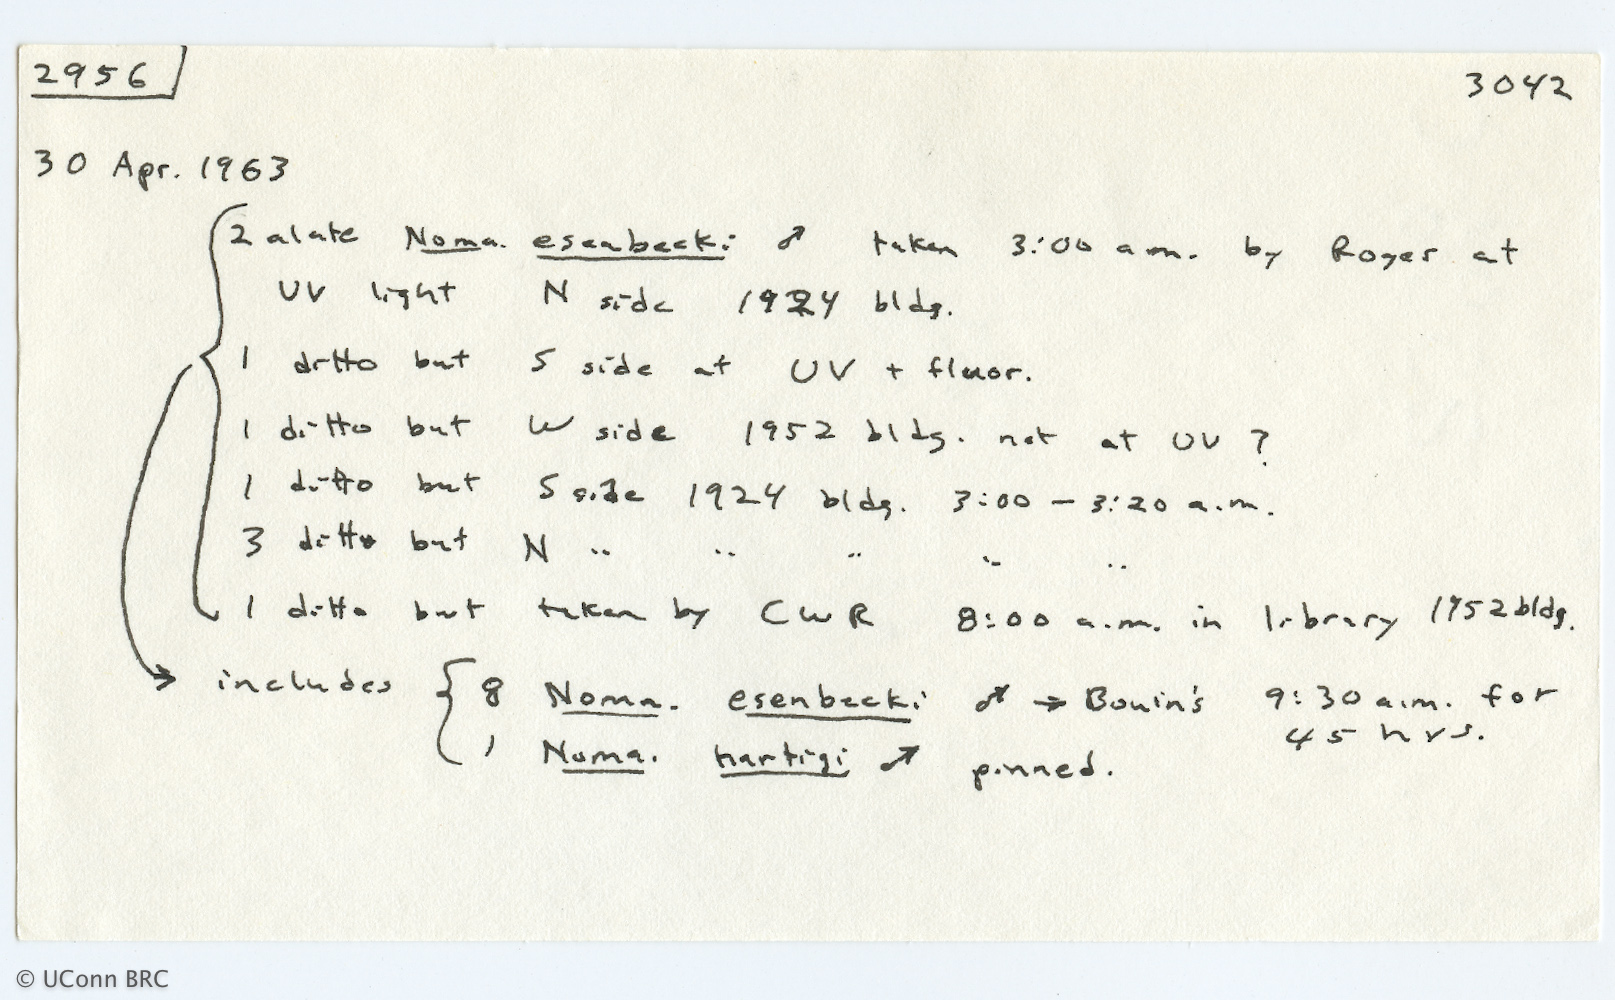 2956
3042
30 Apr. 1963
2 alate Noma. esenbecki ♂ taken 3:00 a.m. by Roger at
UV light N side 1924 bldg.
1 ditto but S side at UV + fluor.
1 ditto but W side 1952 bldg. not at UV ?
1 ditto but S side 1924 bldg. 3:00 – 3:20 a.m.
3 ditto but N " " " " "
1 ditto but taken by CWR 8:00 a.m. in library 1952 bldg.
→ includes { 8 Noma. esenbecki ♂ → Bouin's 9:30 a.m. for
45 hrs.
1 Noma. hartigi ♂ pinned.
© UConn BRC